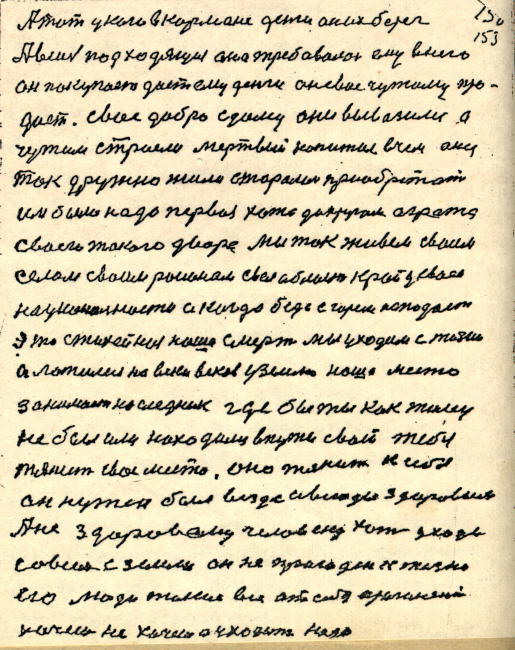 150
153
А тот у кого в кармане деньги он их берег
А был подходящий она требовалось ему в него
он покупает дает ему деньги он свое чужому про-
дает. свое добро с дому они вывозили а
чужим строели мертвый капитал в чем они
так дружно жили старалис приобретат
им было надо первая хата кругом
своего такого двора мы так живем своим
селом своим районам своя область край у своео
национальности а когда беда с горем нападает
это стихейная наша смерт мы уходим с жизни
а на веки веков у землю наша место
занимает наследник где бы ты как живу
не был или находился в пути свой тебя
тянет свое место. оно тянит к себе
он нужен был везде и всегда здоровыи
А не здоровому человеку хот уходи
совсем с земли он не пригоден к жизни
его люди такие все от себя прогоняют
хочеш не хочеш а уходит надо